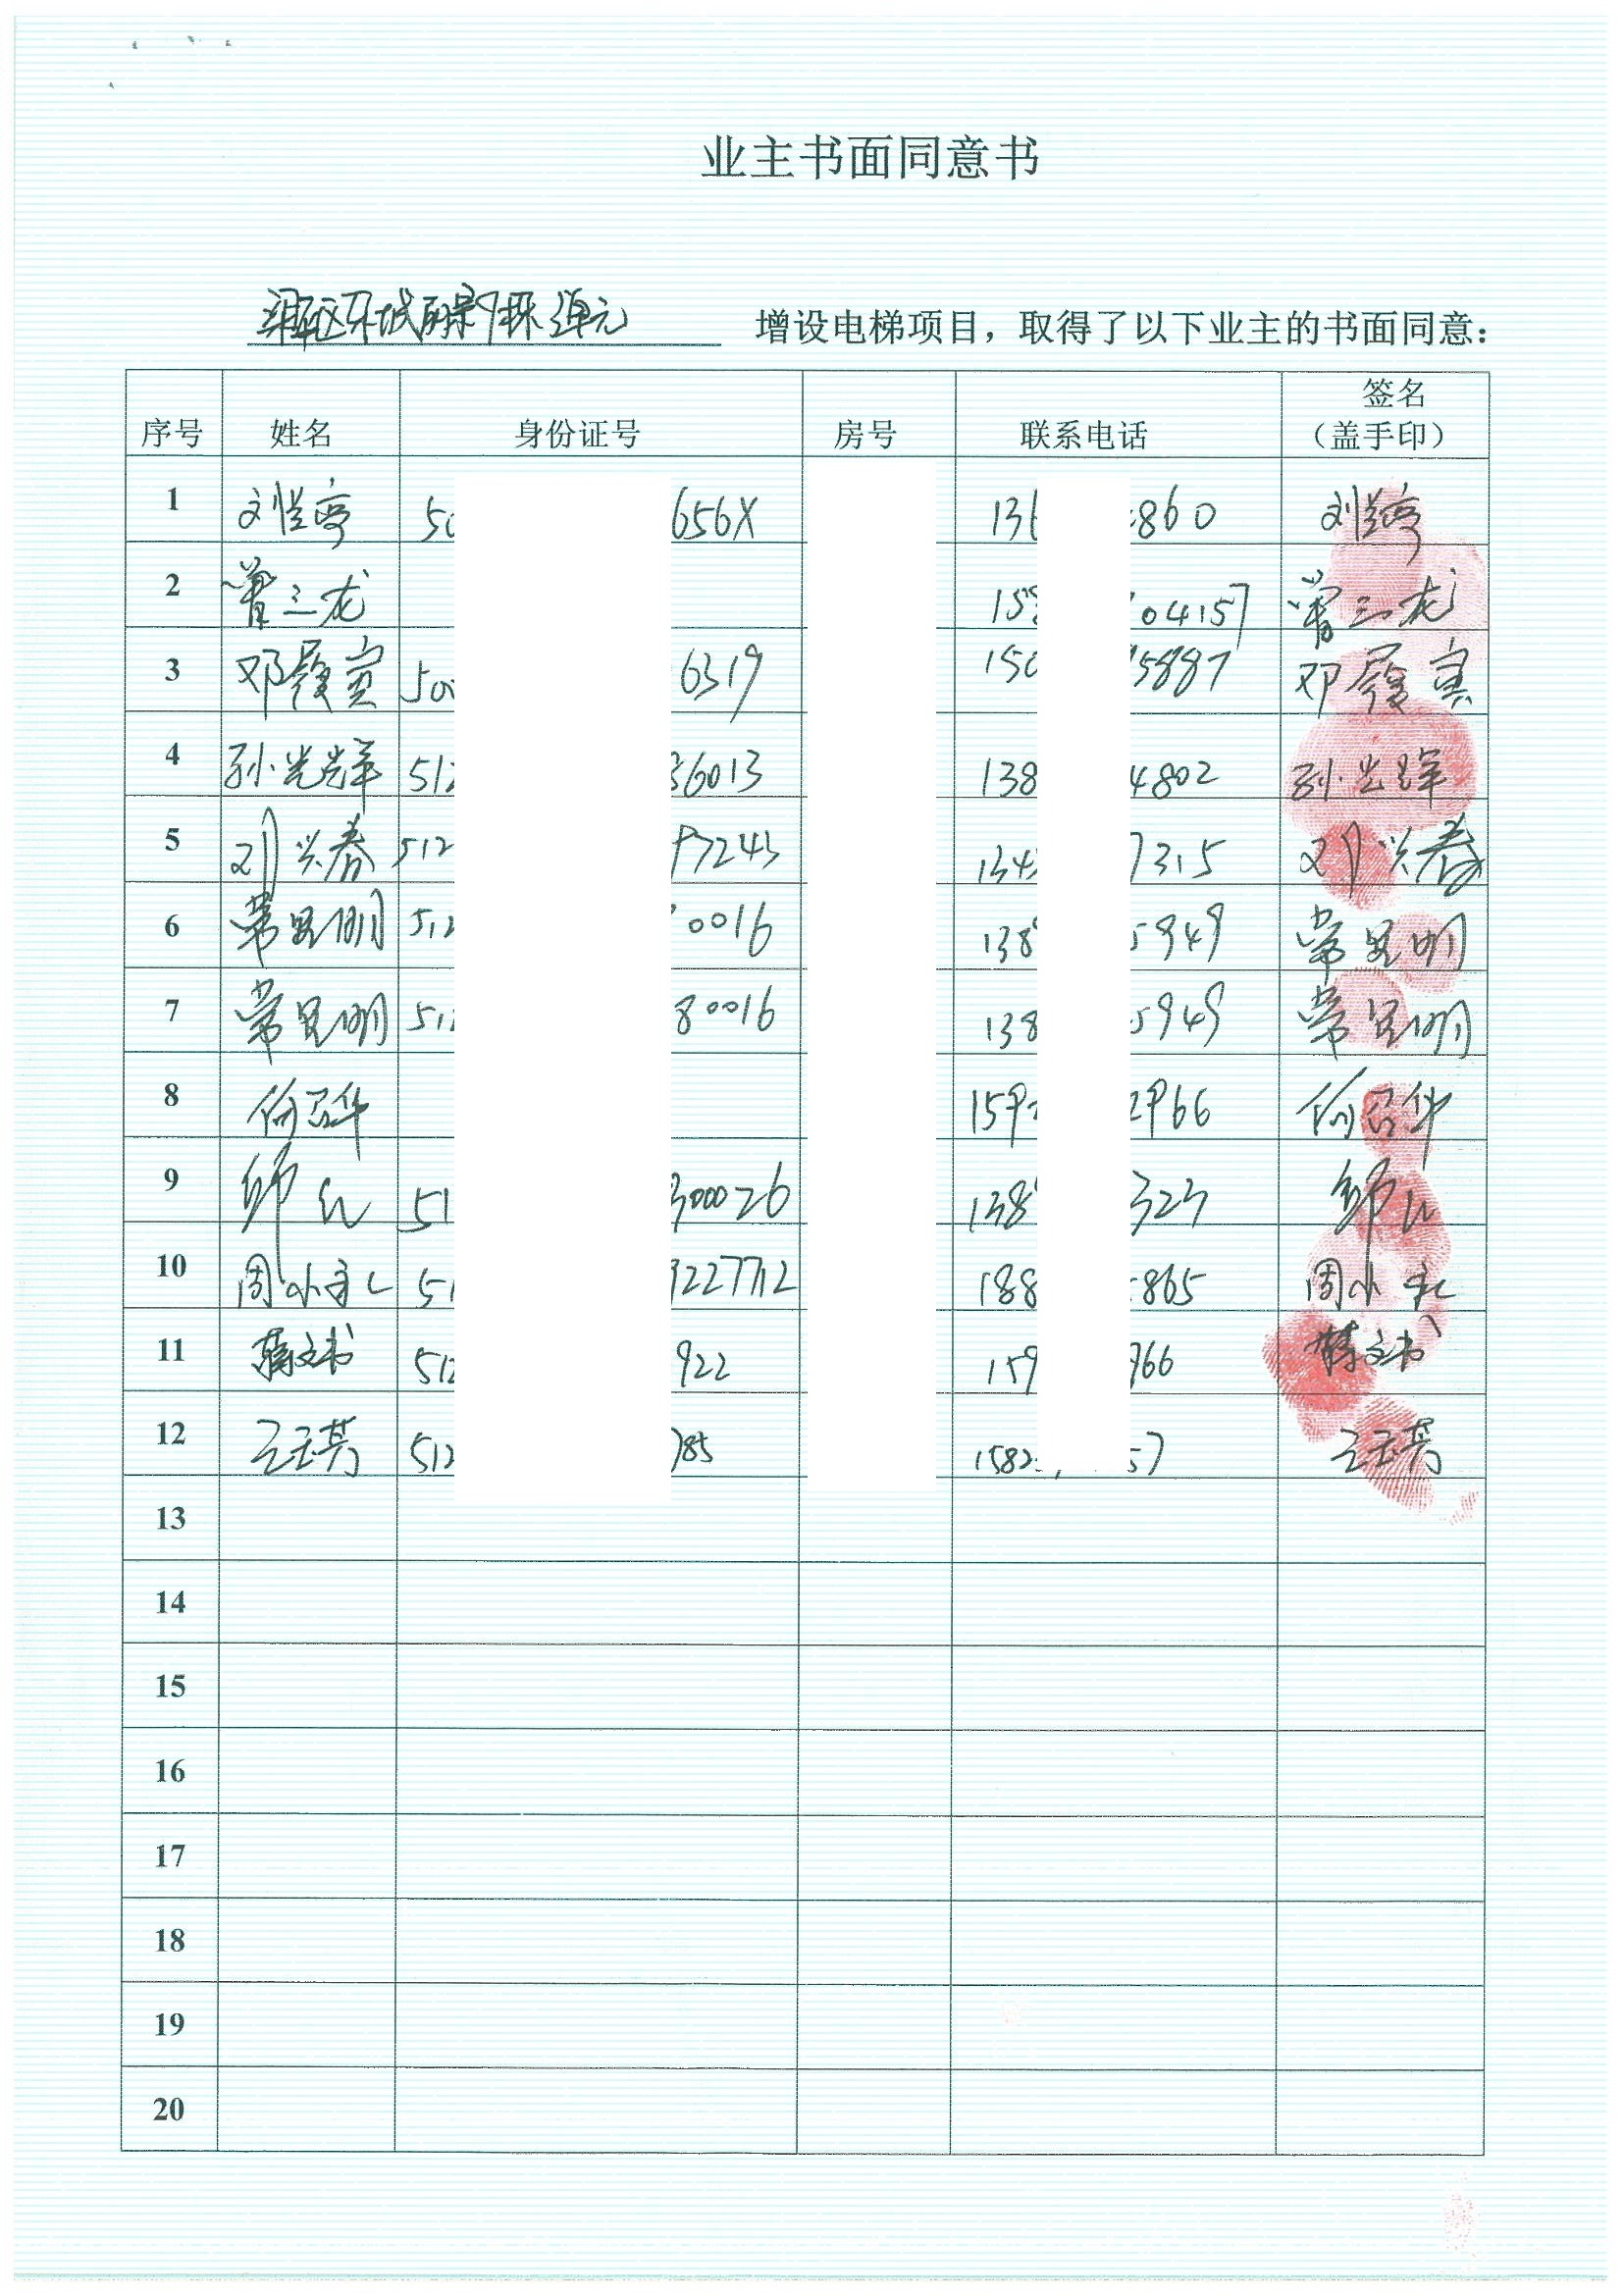 业主书面同意书
增设电梯项目，取得了以下业主的书面同意：
序号 姓名 身份证号 房号 联系电话 签名（盖手印）
1 50 656X 136 860
2 曾三龙 04157 曾三龙
3 邓 6319 150 5887 邓
4 孙光辉 512 6013 138 4802 孙光辉
5 刘兴春 512 7243 134 7315 刘兴春
6 常昆明 512 0016 138 5949 常昆明
7 常昆明 51 80016 138 5949 常昆明
8 何召华 159 2966 何召华
9 51 00026 138 323
10 周小 51 188 865 周小
11 蒋文书 512 922 159 966 蒋文书
12 王玉芳 512 785 1582 57 王玉芳
13
14
15
16
17
18
19
20